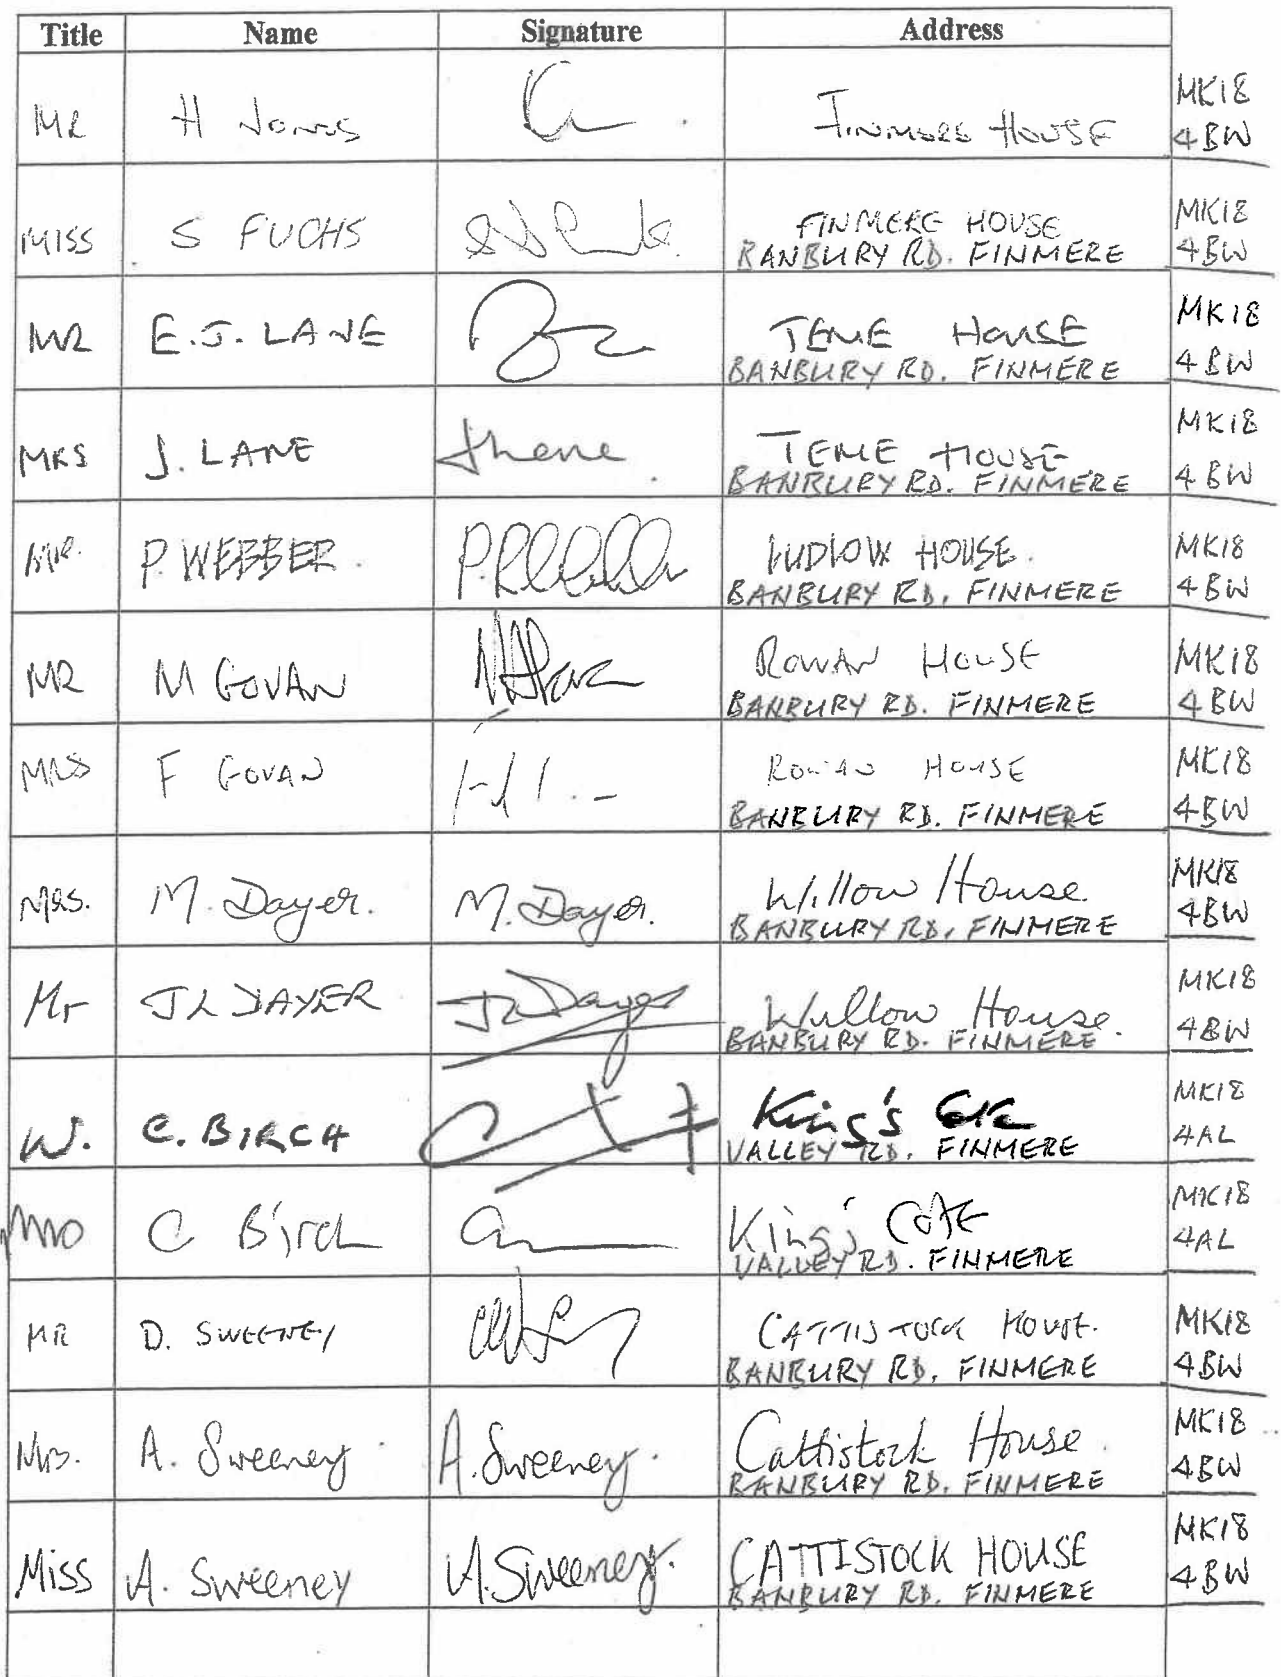 Title Name Signature Address
MR H JONES FINMERE HOUSE MK18
4BW
MISS S FUCHS FINMERE HOUSE MK18
BANBURY RD. FINMERE 4BW
MR E.J. LANE TEME HOUSE MK18
BANBURY RD. FINMERE 4BW
MRS J. LANE TEME HOUSE MK18
BANBURY RD. FINMERE 4BW
MR. P. WEBBER. LUDLOW HOUSE. MK18
BANBURY RD. FINMERE 4BW
MR M GOVAN ROWAN HOUSE MK18
BANBURY RD. FINMERE 4BW
MRS F GOVAN ROWAN HOUSE MK18
BANBURY RD. FINMERE 4BW
MRS. M. Dayer. M. Dayer. Willow House MK18
BANBURY RD. FINMERE 4BW
Mr JL DAYER JL Dayer Willow House. MK18
BANBURY RD. FINMERE 4BW
C. BIRCH King's MK18
VALLEY RD. FINMERE 4AL
C Birch King's MK18
VALLEY RD. FINMERE 4AL
MR D. SWEENEY CATTISTOCK HOUSE. MK18
BANBURY RD. FINMERE 4BW
Mrs. A. Sweeney A. Sweeney. Cattistock House MK18
BANBURY RD. FINMERE 4BW
Miss A. Sweeney A. Sweeney. CATTISTOCK HOUSE MK18
BANBURY RD. FINMERE 4BW